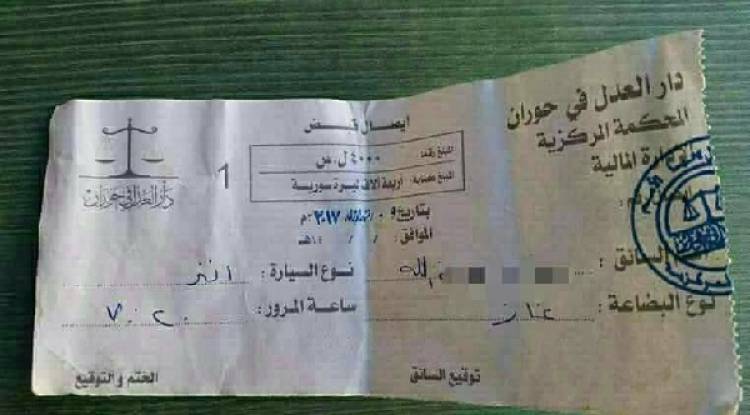 دار العدل في حوران
المحكمة المركزية
المالية
إيصال قبض
المبلغ رقما: ٤٠٠٠ ل.س
المبلغ كتابة: أربعة آلاف ليرة سورية
1
دار العدل في حوران
بتاريخ ٢٠١٧م
الموافق: / / ١٤هـ
السائق: الله
نوع السيارة: انتر
نوع البضاعة: غاز
ساعة المرور:
توقيع السائق
الختم والتوقيع